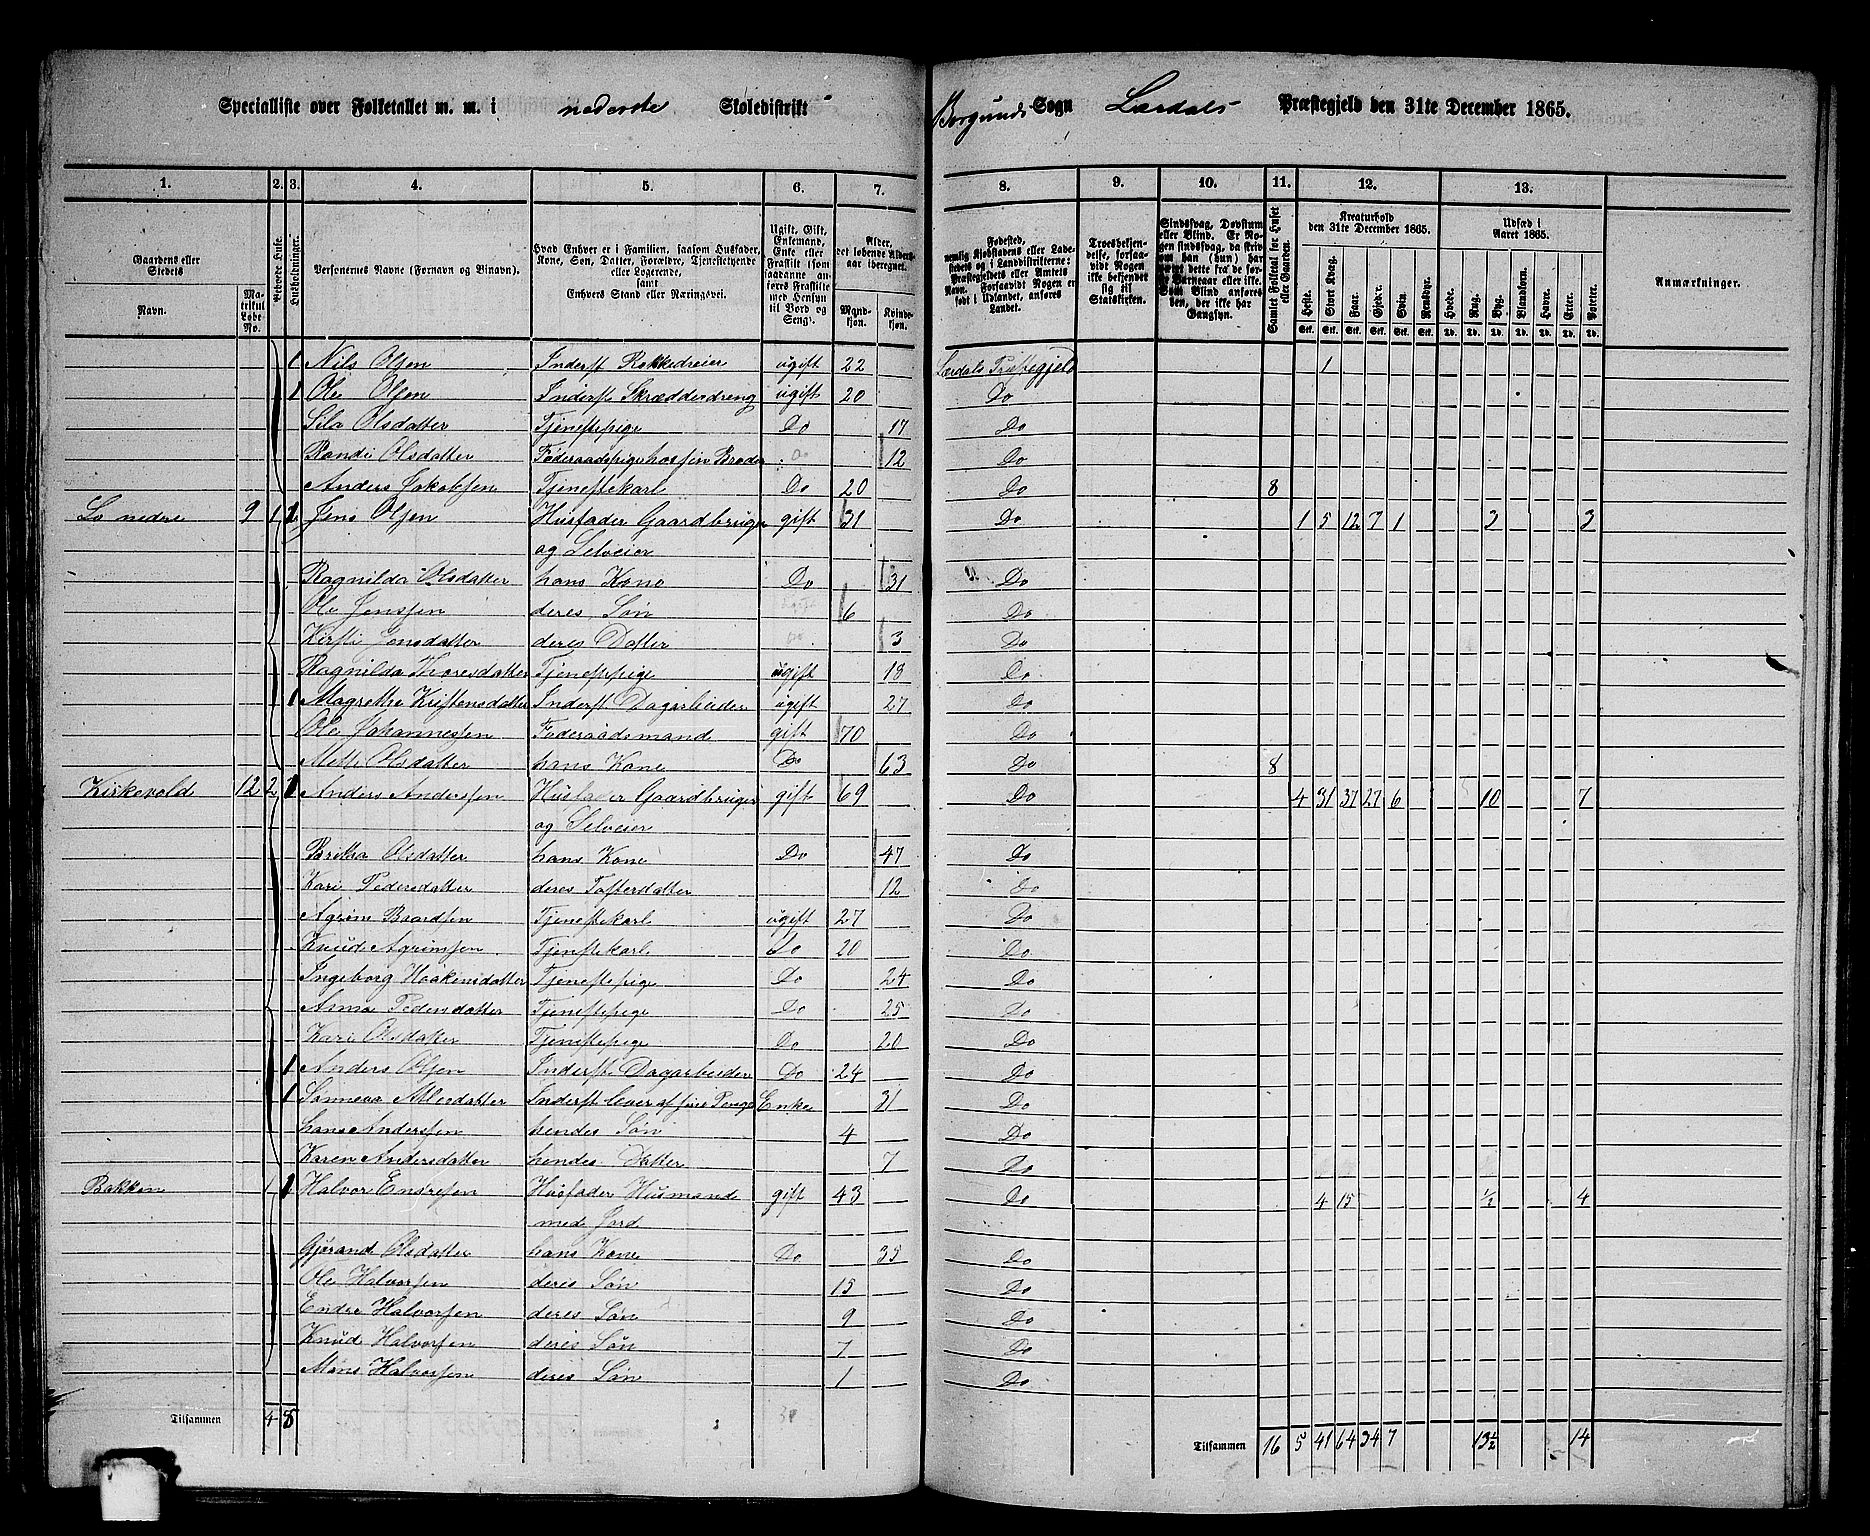 Specialliste over Folketallet m. m. i nederste Skoledistrikt Borgunds Sogn Lærdals Præstegjeld den 31te December 1865.
1. 2. 3. 4. 5. 6. 7. 8. 9. 10. 11. 12. 13.
Gaardens eller Stedets
Navn.
Matrikul Løbe-No.
Beboede Huse.
Husholdninger.
Personernes Navne (Fornavn og Tilnavn).
Hvad Enhver er i Familien, saasom Husfader, Kone, Søn, Datter, Forældre, Tjenestetyende eller Logerende, samt Enhvers Stand eller Næringsvei.
Alder, det løbende Aldersaar iberegnet.
Mandkjøn.
Kvindekjøn.
Troesbekjendelse, forsaavidt Nogen ikke bekjender sig til Statskirken.
Samlet Folketal for Huset eller Gaarden.
Kreaturhold den 31te December 1865.
Heste. Stort Kvæg. Faar. Gjeder. Svin. Rensdyr.
Udsæd i Aaret 1865.
Hvede. Rug. Byg. Blandkorn. Havre. Erter. Poteter.
Anmærkninger.
1 Nils Olsen Inderst Rokkedreier ugift 22 Lærdals Præstegjeld 1
1 Ole Olsen Inderst Skrædderdreng ugift 20 Do
Sila Olsdatter Tjenestepige Do 17 Do
Randi Olsdatter Føderaadspige hos sin Broder Do 12 Do
Anders Jakobsen Tjenestekarl Do 20 Do 8
Lo nedre 9 1 1 Jens Olsen Husfader Gaardbruger gift 31 Do 1 5 12 7 1 3 3
og Selveier
Ragnilda Olsdatter hans Kone Do 31 Do
Ole Jenssen deres Søn 6 Do
Kirsti Jensdatter deres Datter 3 Do
Ragnilda Thoresdatter Tjenestepige ugift 18 Do
1 Magrethe Kristensdatter Inderst Dagarbeider ugift 27 Do
Ole Johannessen Føderaadsmand gift 70 Do
Mette Olsdatter hans Kone Do 63 Do 8
Kirkevold 12 2 1 Anders Anderssen Husfader Gaardbruger gift 69 Do 4 31 37 27 6 10 7
og Selveier
Britha Olsdatter hans Kone Do 47 Do
Kari Pedersdatter deres Fosterdatter 12 Do
Agrim Baardsen Tjenestekarl ugift 27 Do
Knud Agrimsen Tjenestekarl Do 20 Do
Ingeborg Haakensdatter Tjenestepige Do 24 Do
Anna Pedersdatter Tjenestepige Do 25 Do
Kari Olsdatter Tjenestepige Do 20 Do
1 Anders Olsen Inderst Dagarbeider Do 24 Do
1 Sønneva Alvsdatter Inderst lever af sine Penge Enke 31 Do
Hans Anderssen hendes Søn 4 Do
Karen Andersdatter hendes Datter 7 Do
Bakken 1 1 Halvor Endresen Husfader Husmand gift 43 Do 4 15 ½ 4
med Jord
Gjørand Olsdatter hans Kone Do 35 Do
Ole Halvorsen deres Søn 15 Do
Endre Halvorsen deres Søn 9 Do
Knud Halvorsen deres Søn 7 Do
Mons Halvorsen deres Søn 1 Do
Tilsammen 4 8
Tilsammen 16 5 41 64 34 7 13½ 14